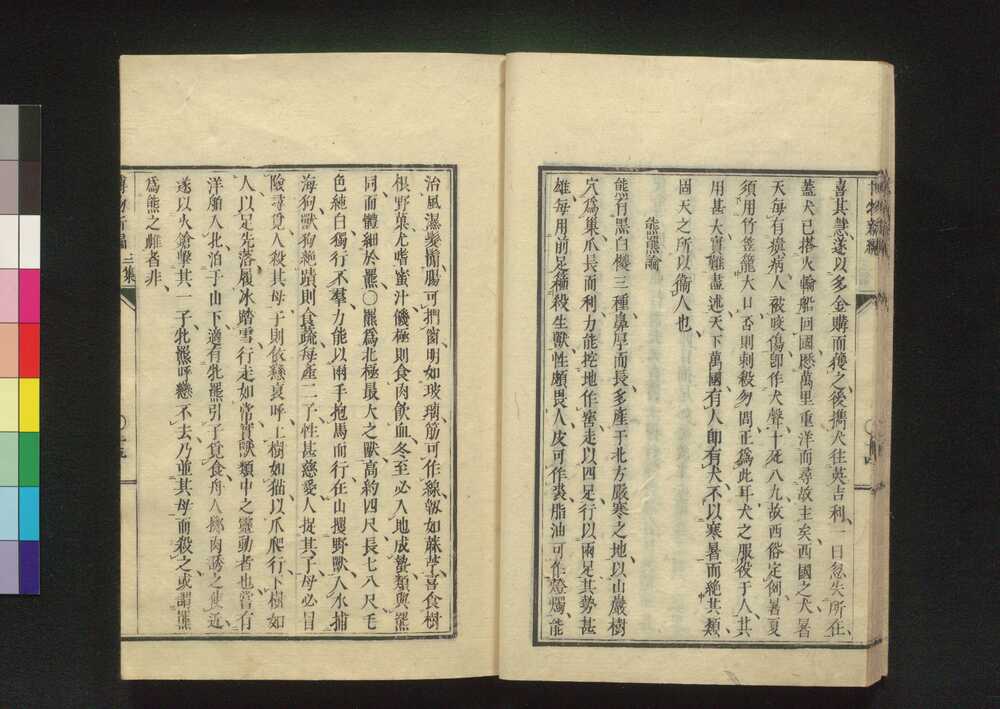 博物新編
喜其慧遂以多金購而獲之後携犬往英吉利一日忽失所在
蓋犬已搭火輪船回國厯萬里重洋而尋故主矣西國之犬暑
天每有癲病人被咬傷卽作犬聲十死八九故西俗定例暑夏
須用竹笠籠犬口否則刺殺勿問正爲此耳犬之服役于人其
用甚大實難盡述天下萬國有人卽有犬不以寒暑而絶其類
固天之所以衞人也
熊羆論
熊有黑白㯶三種鼻厚而長多產于北方嚴寒之地以山巖樹
穴爲巢爪長而利力能挖地作窖走以四足行以兩足其勢甚
雄每用前足殺生獸性頗畏人皮可作裘脂油可作燈燭能
治風濕變腸可捫窗明如玻璃筋可作線韌如蔴苧喜食樹
根野菓尤嗜蜜汁饑極則食肉飮血冬至必入地成蟄類與羆
同而體細於羆〇羆爲北極最大之獸高約四尺長七八尺毛
色純白獨行不羣力能以兩手抱馬而行在山攫野獸入水捕
海狗獸狗絶蹟則食蔬每產二子性甚慈愛人捉其子母必冒
險尋覓人殺其母子則依戀哀呼上樹如猫以爪爬行下樹如
人以足先落履冰踏雪行走如常實獸類中之靈動者也嘗有
洋船入北泊于山下適有牝羆引子覓食舟人擲肉誘之使近
遂以火鎗擊其一子牝羆呼戀不去乃並其母而殺之或謂羆
爲熊之雌者非
博物新編 三集